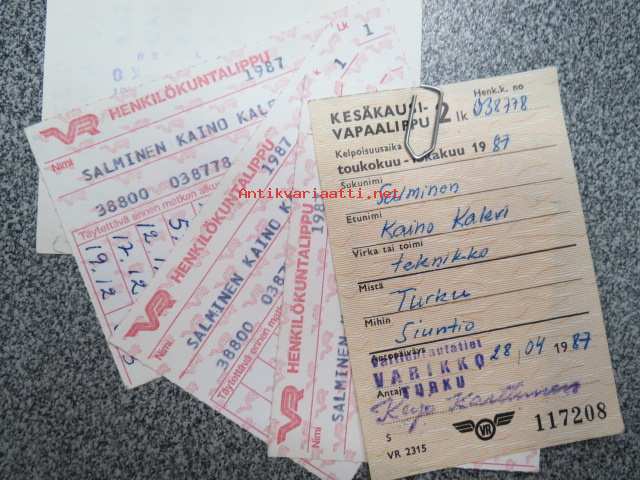 VR HENKILÖKUNTALIPPU 1987
Nimi
SALMINEN KAINO KALE
38800 038778
Täytettävä ennen matkan alkua
19.12
17.12
12.
5.
VR HENKILÖKUNTALIPPU 1987
Nimi
SALMINEN KAINO K
38800 038778
Täytettävä ennen
Lk
1
1
VR HENKILÖKUNTALIPPU 198
Nimi
SALMINEN KAI
Antikvariaatti.net
KESÄKAUSI-
VAPAALIPPU 2 lk
Henk.k. no
038778
Kelpoisuusaika
toukokuu-lokakuu 1987
Sukunimi
Salminen
Etunimi
Kaino Kalevi
Virka tai toimi
teknikko
Mistä
Turku
Mihin
Siuntio
Antopäiväys
28.04 1987
Valtionrautatiet
VARIKKO
TURKU
Antaja
S
VR
117208
VR 2315